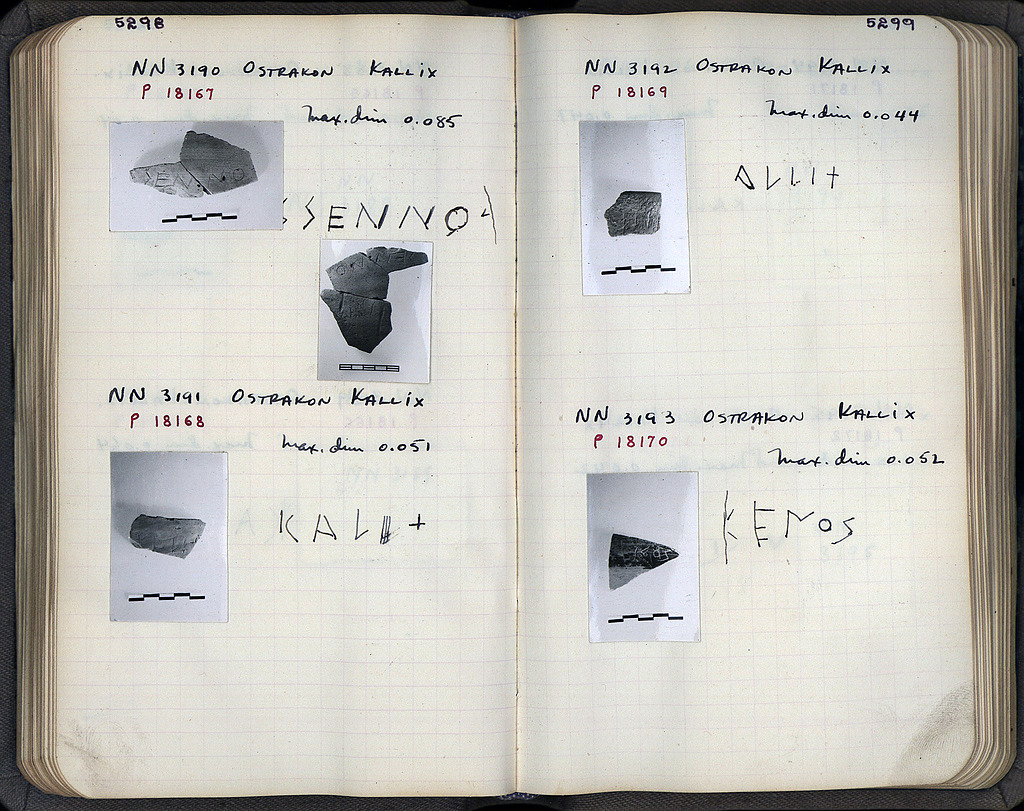 5298
NN 3190 OSTRAKON KALLIX
P 18167
Max. dim 0.085
SENNO
NN 3191 OSTRAKON KALLIX
P 18168
Max. dim 0.051
5299
NN 3192 OSTRAKON KALLIX
P 18169
Max. dim 0.044
NN 3193 OSTRAKON KALLIX
P 18170
Max. dim 0.052
KENOS